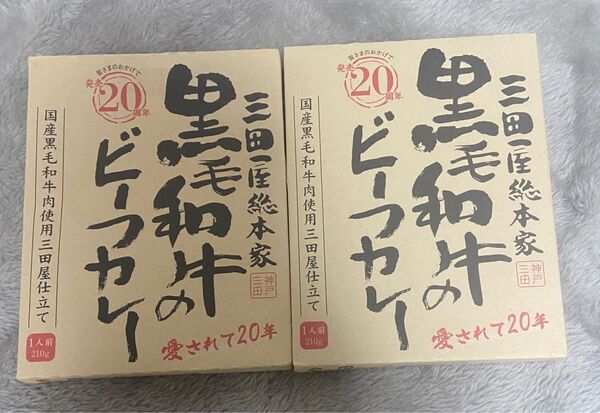 皆さまのおかげで
発売
20
周年
三田屋総本家
黒毛和牛の
ビーフカレー
国産黒毛和牛肉使用三田屋仕立て
神戸
三田
1人前
210g
愛されて20年
皆さまのおかげで
発売
20
周年
三田屋総本家
黒毛和牛の
ビーフカレー
国産黒毛和牛肉使用三田屋仕立て
神戸
三田
1人前
210g
愛されて20年